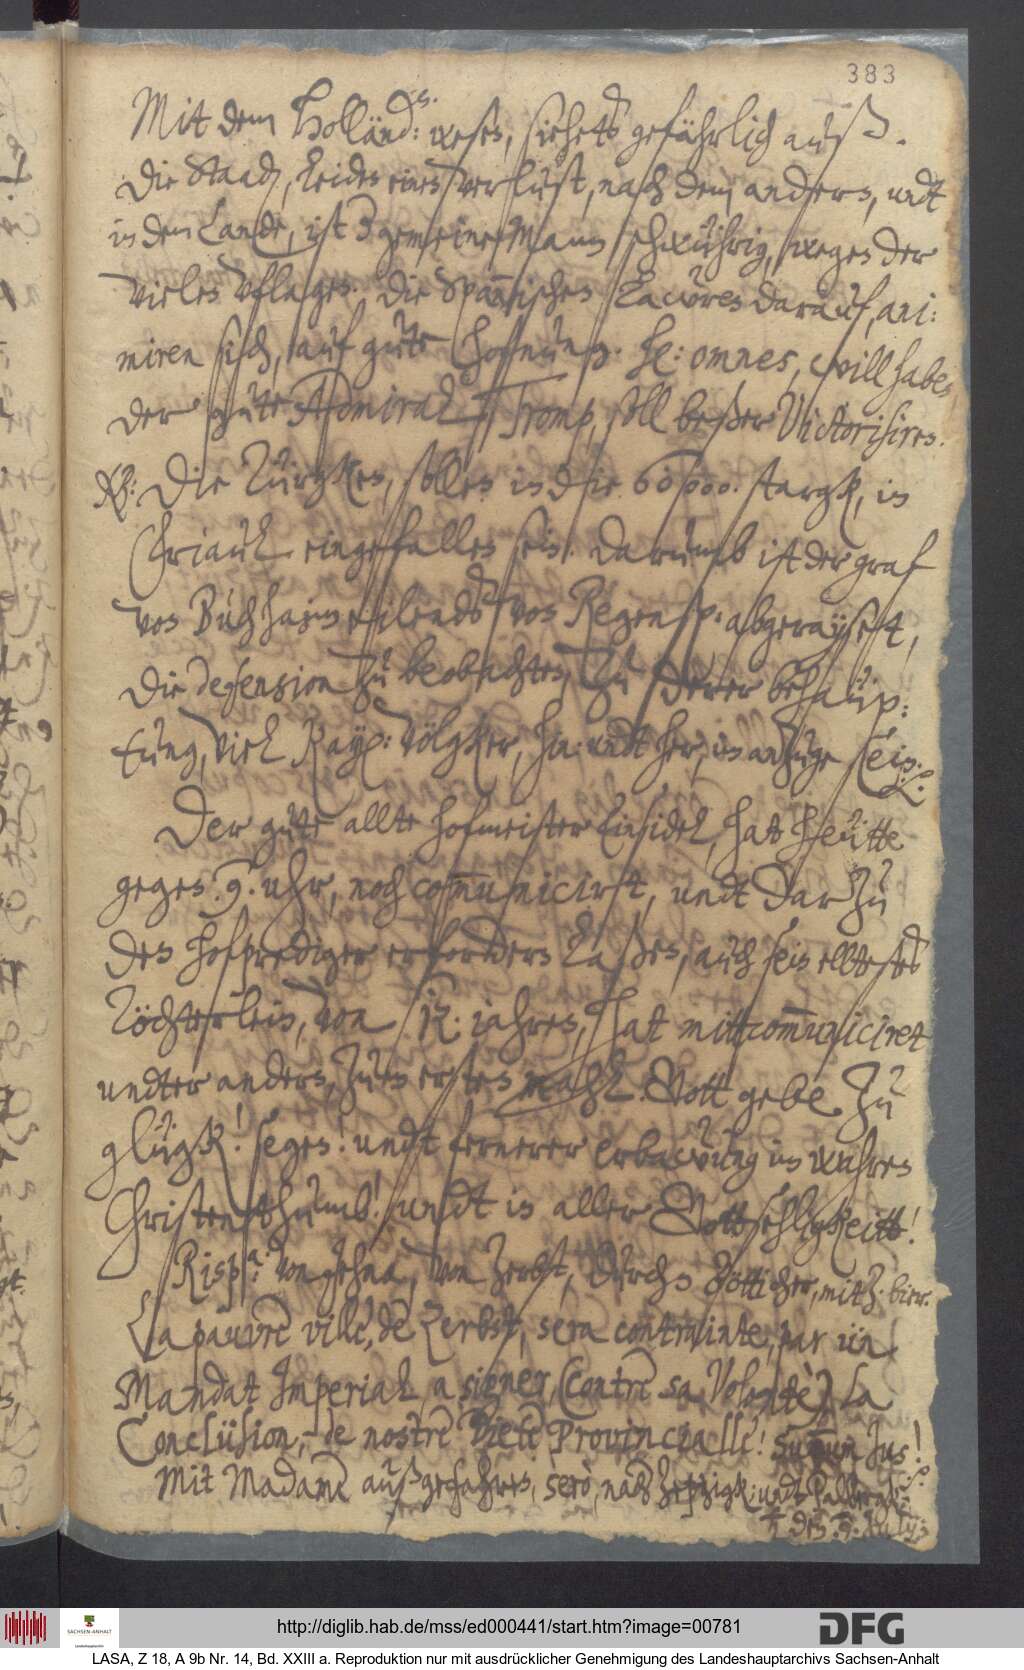 383
Mit dem Holländ: wesen, siehets gefährlich auß.
Die Staad, leiden einen verlust, nach dem andern, undt
in dem Lande, ist der gemeine Mann schwührig, wegen der
vielen Uflagen. Die Spannischen lauren darauf, ani:
miren sich, auf gute hofnung. He: omnes, will haben
der gute Admiral Tromp, soll beßer Victorisiren.
Die Türgken, sollen in die 60000. stargk, in
Friaul eingefallen sein. darumb ist der graf
von Buchhaim eilends von Regensp: abgerayset,
die defension zu beobachten, zu derer behaüp:
tung, viel Kayß: völgker, hin: undt her, im anzuge sein.
Der gute allte hofmeister Einsidel, hat heütte
gegen 9. uhr, noch communicirt, undt darzu
den hofprediger erfordern laßen, auch sein elltestes
Töchterlein, von 12. jahren, hat mittcommuniciret
undter andern, zum ersten mahl. Gott gebe zu
glügk! segen! undt fernerer erbawung im wahren
Christenthumb! undt in aller Gottsehligkeitt!
Risp.a: von Jehna, von Zerbst, durchs Bötticher, mit Z. bier.
La pauvre ville, de Zerbst, sera contrainte, par ün
Mandat Imperial, a signer, (contre sa Volonté) la
Conclüsion, de nostre Diete Provincialle! Sum̄um Jus!
Mit Madame außgefahren, sero, nach Zeptzigk: undt Palbergk.
den 9. Julij:
http://diglib.hab.de/mss/ed000441/start.htm?image=00781
DFG
SACHSEN-ANHALT
LASA, Z 18, A 9b Nr. 14, Bd. XXIII a. Reproduktion nur mit ausdrücklicher Genehmigung des Landeshauptarchivs Sachsen-Anhalt